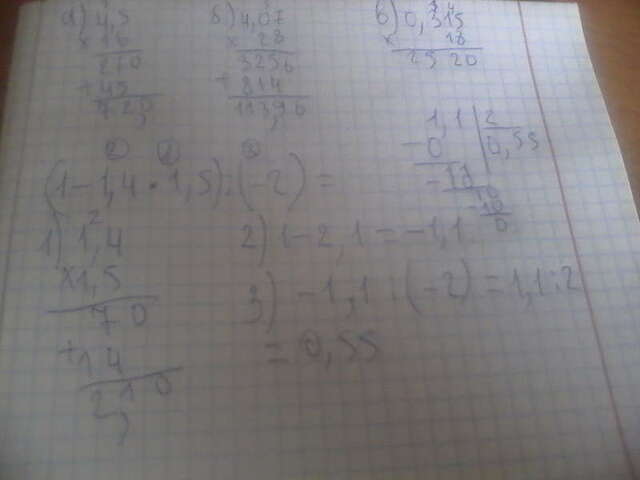 а) 4,5
× 16
270
+ 45
72,0
б) 4,07
× 28
3256
+ 814
113,96
в) 0,315
× 18
25 20
(1 - 1,4 · 1,5) : (-2) =
1) 1,4
× 1,5
70
+ 14
2,10
2) 1 - 2,1 = -1,1
3) -1,1 : (-2) = 1,1 : 2
= 0,55
1,1 | 2
- 0 | 0,55
- 10
0